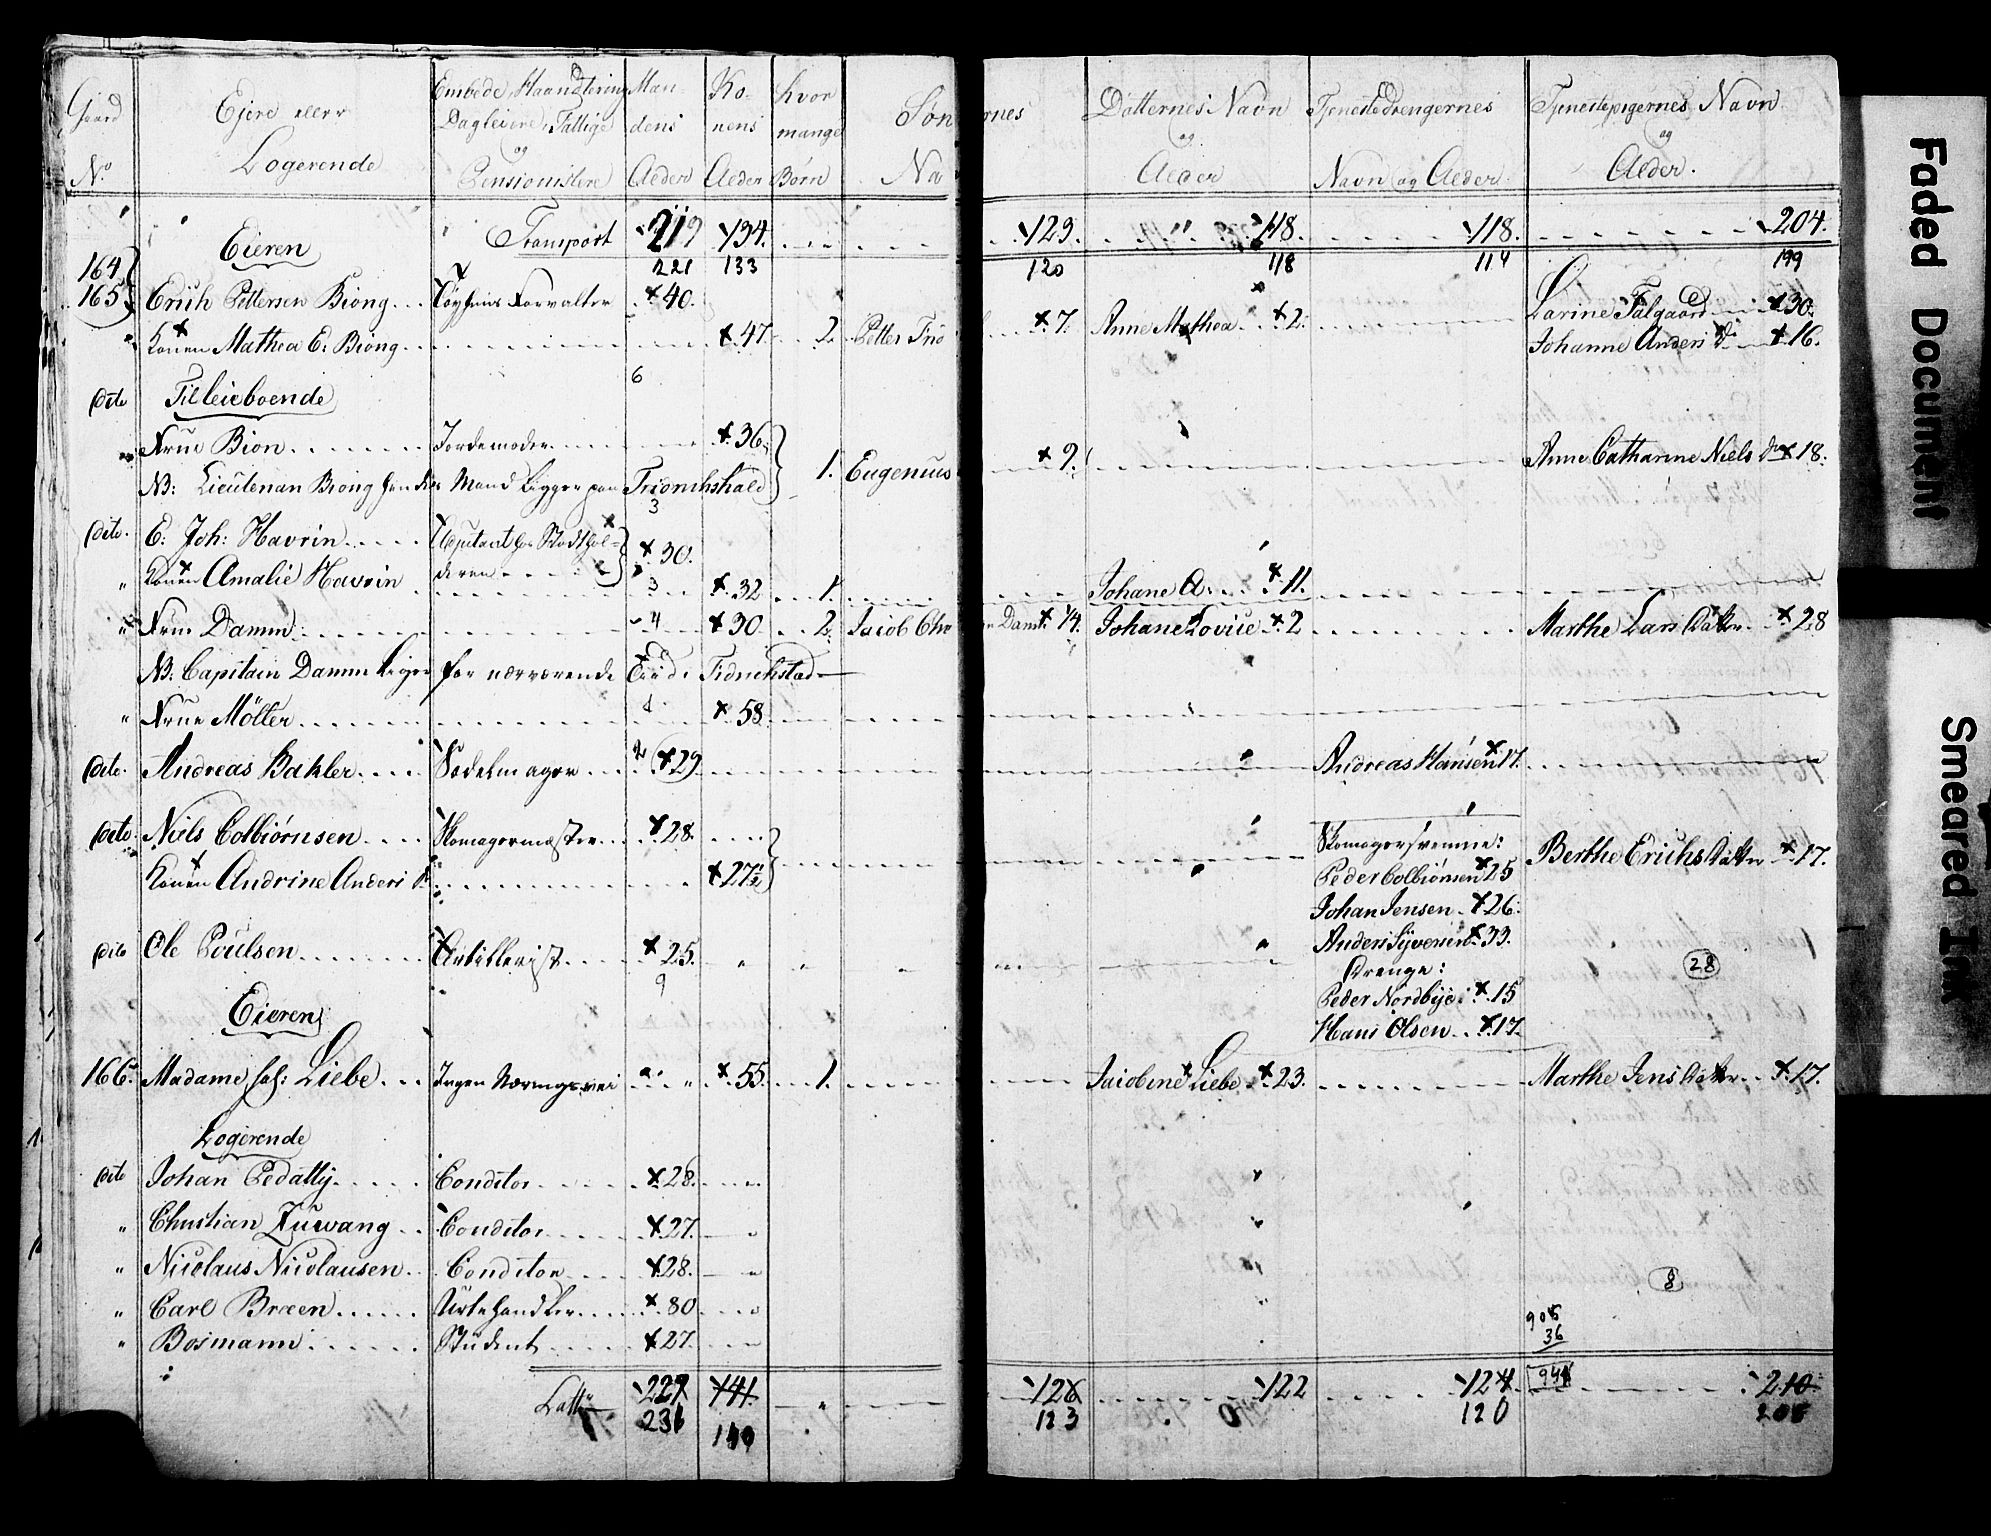 Gaard Ejere eller Embede, Haandtering Man Ko- hvor Søn rnes Døtternes Navn Tjenestedrengernes Tjenestepigernes Navn
Dagleiere, Fattige dens nens mange og og
No Logerende og Pensionistere Alder Alder Børn Na Alder Navn og Alder Alder.
Eieren Transport 219 134. 123. 118. 118. 204.
164 221 133 120 118 114 199
165 Erich Pettersen Biong Tøyhuus Forvalter 40. 7. Anne Mathea 2. Larine Falgaard 30.
Konen Mathea E. Biong 47. 2. Petter Frid Johanne Anders D. 16.
6
dito Tilleieboende
Frue Bion Jordemoder 36. 1. Eugenius 9. Anne Catharine Niels Dr 18.
NB: Lieutenan Biong hendes Mand ligger paa Friderichshald
3
dito. E. Joh: Havrin Adjutant hos Stadthol- 30.
" Konen Amalie Havrin deren 3 32 1. Johane A. 11.
" Frue Damm 4 30 2. Jacob Chr Dam 14. Johane Lovise 2 Marthe Lars Datter 28
NB: Capitain Damm ligger for nærværende Tiid i Fridrichstad
" Frue Møller 1 58.
dito. Andreas Bakler Sadelmager 2 29 Andreas Hansen 17.
dito. Niels Colbiørnsen Skomagermester 28. Skomagersvenne: Berthe Erichs Datter 17.
Konen Andrine Anders D. 27½ Peder Colbiørnsen 25
Johan Jensen 26.
dito Ole Poulsen Artillerist 25. Anders Syversen 33. 28
9 Drenge:
Eieren Peder Nordbye 15
Hans Olsen 17.
166. Madame sal: Liebe Ingen Næringsvei " 55. 1. Jacobine Liebe 23. Marthe Jens Datter 17.
Logerende
dito Johan Pedatty Conditor 28.
" Christian Zuwang Conditor 27.
" Nicolaus Nicolausen Conditor 28. 8
" Carl Bræen Urtehandler 80 905
36
" Bosmann Student 27.
Latt 227 141. 126 122 124 941 210
231 140 123 120 205
Faded Document
Smeared Ink